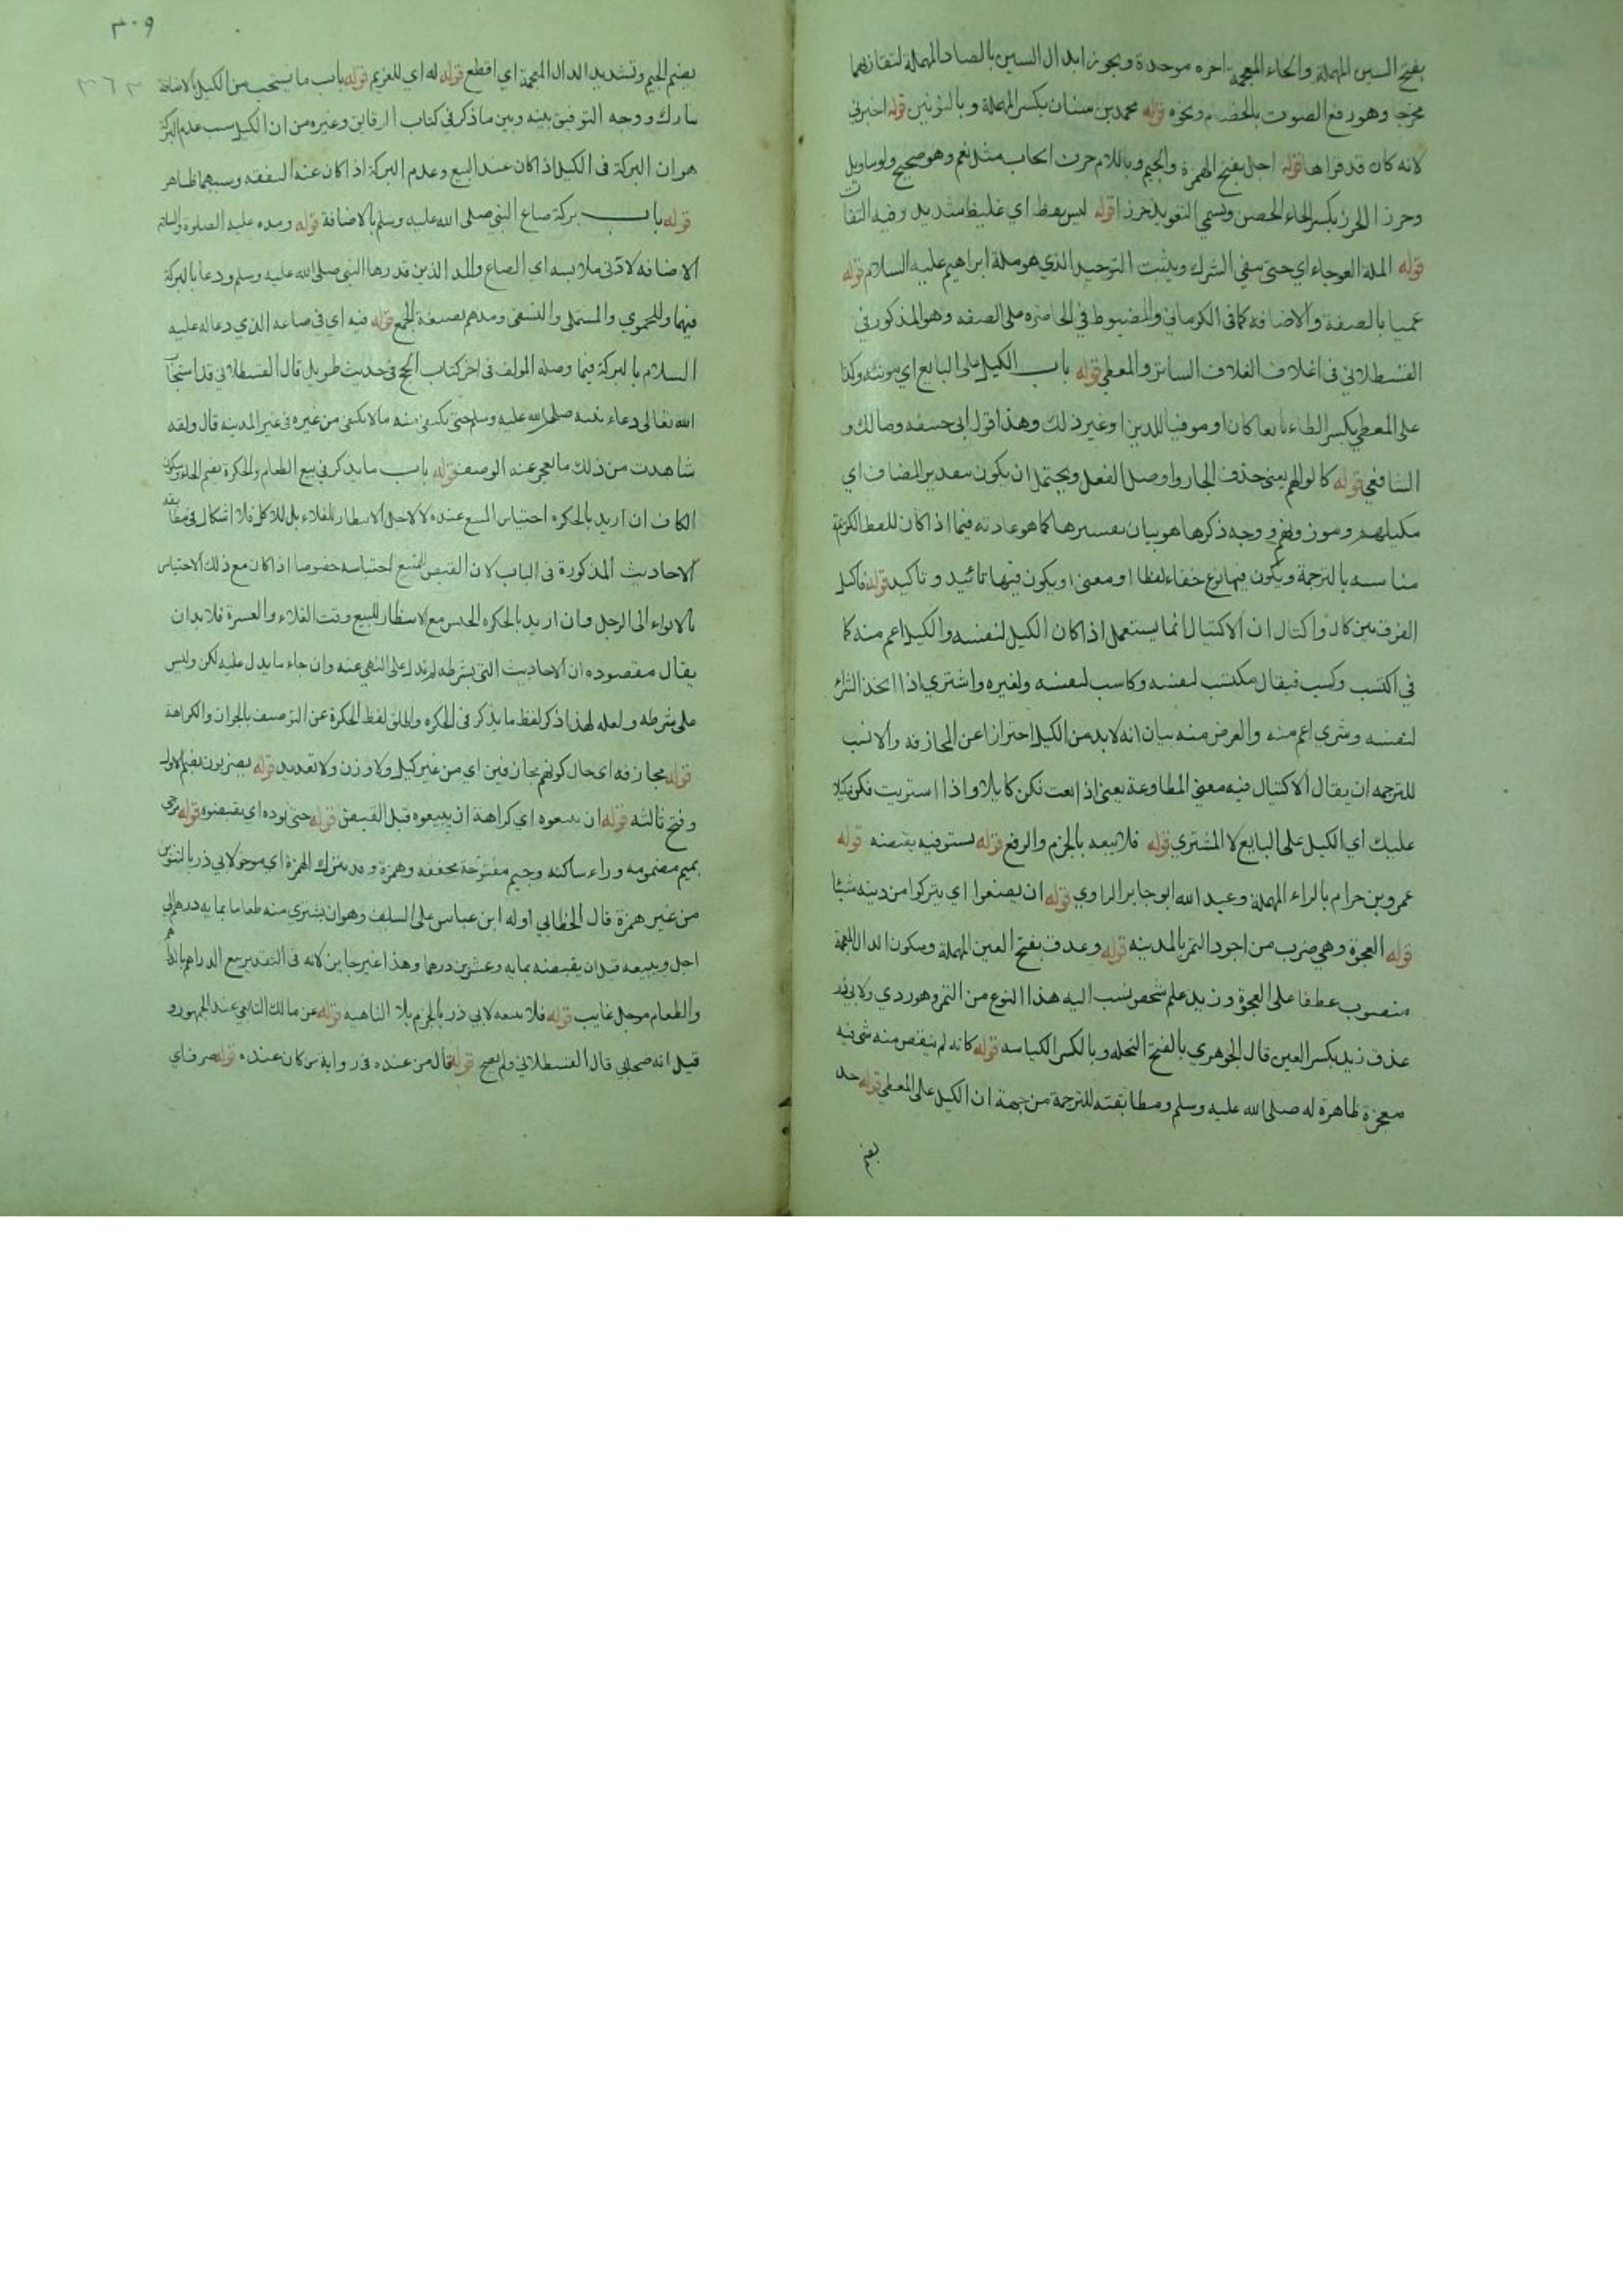 بفتح السين المهملة والخاء المعجمة اخره موحدة ويجوز ابدال السين بالصاد المهملة لتقاربهما
مخرجا وهو رفع الصوت بالخصام ونحوه قوله محمد بن سنان بكسر المهملة وبالنونين قوله اخبرني
لانه كان قد قراها قوله اجل بفتح الهمزة والجيم وباللام حرف ايجاب مثل نعم وهو صحيح ولو
وحرزا الحرز بكسر الحاء الحصن ويسمى التعويذ حرزا قوله ليس بفظ اي غليظ شديد وفيه التفات
قوله الملة العوجاء اي حتى ينفي الشرك ويثبت التوحيد الذي هو ملة ابراهيم عليه السلام قوله
عميا بالصفة والاضافة كما في الكرماني والمضبوط في الحاضره على الصفه وهو المذكور في
القسطلاني في اغلاف الغلاف الساتر والمعطي قوله باب الكيل على البايع اي مونته وكذا
على المعطي بكسر الطاء بايعا كان او موفيا للدين او غير ذلك وهذا قول ابي حنيفه ومالك و
الشافعي قوله كالوا لهم يعني حذف الجار واوصل الفعل ويحتمل ان يكون بتقدير المضاف اي
مكيلهم وموزونهم ووجه ذكرها هو بيان تفسيرها كما هو عادته فيما اذا كان للفظ الكريمة
مناسبه بالترجمة ويكون فيها نوع خفاء لفظا او معنى ويكون فيها تائيد وتاكيد قوله فاكتل
الفرق بين كال واكتال ان الاكتيال انما يستعمل اذا كان الكيل لنفسه والكيل اعم منه كما
في اكتسب وكسب فيقال مكتسب لنفسه وكاسب لنفسه ولغيره واشترى اذا اتخذ الشراء
لنفسه وشرى اعم منه والغرض منه بيان انه لابد من الكيل احترازا عن المجازفه والانسب
للترجمه ان يقال الاكتيال فيه معنى المطاوعة يعني اذا بعت فكن كايلا واذا اشتريت فكن مكيلا
عليك اي الكيل على البايع لا المشتري قوله فلا يبعه بالجزم والرفع قوله يستوفيه يقبضه قوله
عمرو بن حرام بالراء المهملة وعبد الله ابو جابر الراوي قوله ان يضعوا اي يتركوا من دينه شيئا
قوله العجوة وهي ضرب من اجود التمر بالمدينه قوله وعذق بفتح العين المهملة وسكون الذال المعجمة
منصوب عطفا على العجوة وزيد علم شخص نسب اليه هذا النوع من التمر وهو ردي ولابي ذر
عذق زيد بكسر العين قال الجوهري بالفتح النخله وبالكسر الكباسه قوله كانه لم ينقص منه شي فيه
معجزة ظاهرة له صلى الله عليه وسلم ومطابقته للترجمة من جهة ان الكيل على المعطي قوله جذ
بضم
٣٠٩
٣٦٣
بضم الجيم وتشديد الذال المعجمة اي اقطع قوله له اي للغريم قوله باب ما يستحب من الكيل بالاضافة
مبارك ووجه التوفيق بينه وبين ما ذكر في كتاب الرقاق وغيره من ان الكيل سبب عدم البركة
هو ان البركة في الكيل اذا كان عند البيع وعدم البركة اذا كان عند النفقه وسببهما ظاهر
قوله باب بركة صاع النبي صلى الله عليه وسلم بالاضافة قوله ومده عليه الصلوة والسلام
الاضافه لادنى ملابسه اي الصاع والمد الذين قدرها النبي صلى الله عليه وسلم ودعا بالبركة
فيهما وللحموي والمستملي والنسفي ومدهم بصيغة الجمع قوله فيه اي في صاعه الذي دعا له عليه
السلام بالبركة فيما وصله المولف في اخر كتاب الحج في حديث طويل قال القسطلاني قد استجاب
الله تعالى دعاء نبيه صلى الله عليه وسلم حتى يكتفي منه ما لا يكفي من غيره في غير المدينه قال ولقد
شاهدت من ذلك ما يعجز عنه الوصف قوله باب ما يذكر في بيع الطعام والحكرة بضم الحاء وسكون
الكاف ان اريد بالحكره احتباس المبيع عنده لا لاجل الانتظار للغلاء بل للاكل فلا اشكال في مطابقة
الاحاديث المذكورة في الباب لان القبض للمبيع احتباسه خصوصا اذا كان مع ذلك الاحتباس
بالايواء الى الرحل وان اريد بالحكره الحبس مع الانتظار للبيع وقت الغلاء والعسرة فلا بد ان
يقال مقصوده ان الاحاديث التي بشرطه لم تدل على النهي عنه وان جاء ما يدل عليه لكن وليس
على شرطه ولعله لهذا ذكر لفظ ما يذكر في الحكره واطلق لفظ الحكرة عن التوصيف بالجواز والكراهة
قوله مجازفه اي حال كونهم مجازفين اي من غير كيل ولا وزن ولا تعديد قوله يضربون بضم الاول
وفتح ثالثه قوله ان يبيعوه اي كراهة ان يبيعوه قبل القبض قوله حتى يوده اي يقبضوه قوله مرجي
بميم مضمومه وراء ساكنه وجيم مفتوحة مخففه وهمزة وقد يترك الهمزة اي موخر لابي ذر بالتنوين
من غير همزة قال الخطابي اوله ابن عباس على السلف وهو ان يشتري منه طعاما بمايه درهم الى
اجل ويبيعه قبل ان يقبضه بمايه وعشرين درهما وهذا غير جايز لانه في التقدير بيع الدراهم بالدراهم
والطعام موجل غايب قوله فلا يبعه لابي ذر بالجزم بلا الناهيه قوله عن مالك التابعي عند الجمهور و
قيل انه صحابي قال القسطلاني ولم يصح قوله قال من عنده في رواية من كان عنده قوله صرف اي